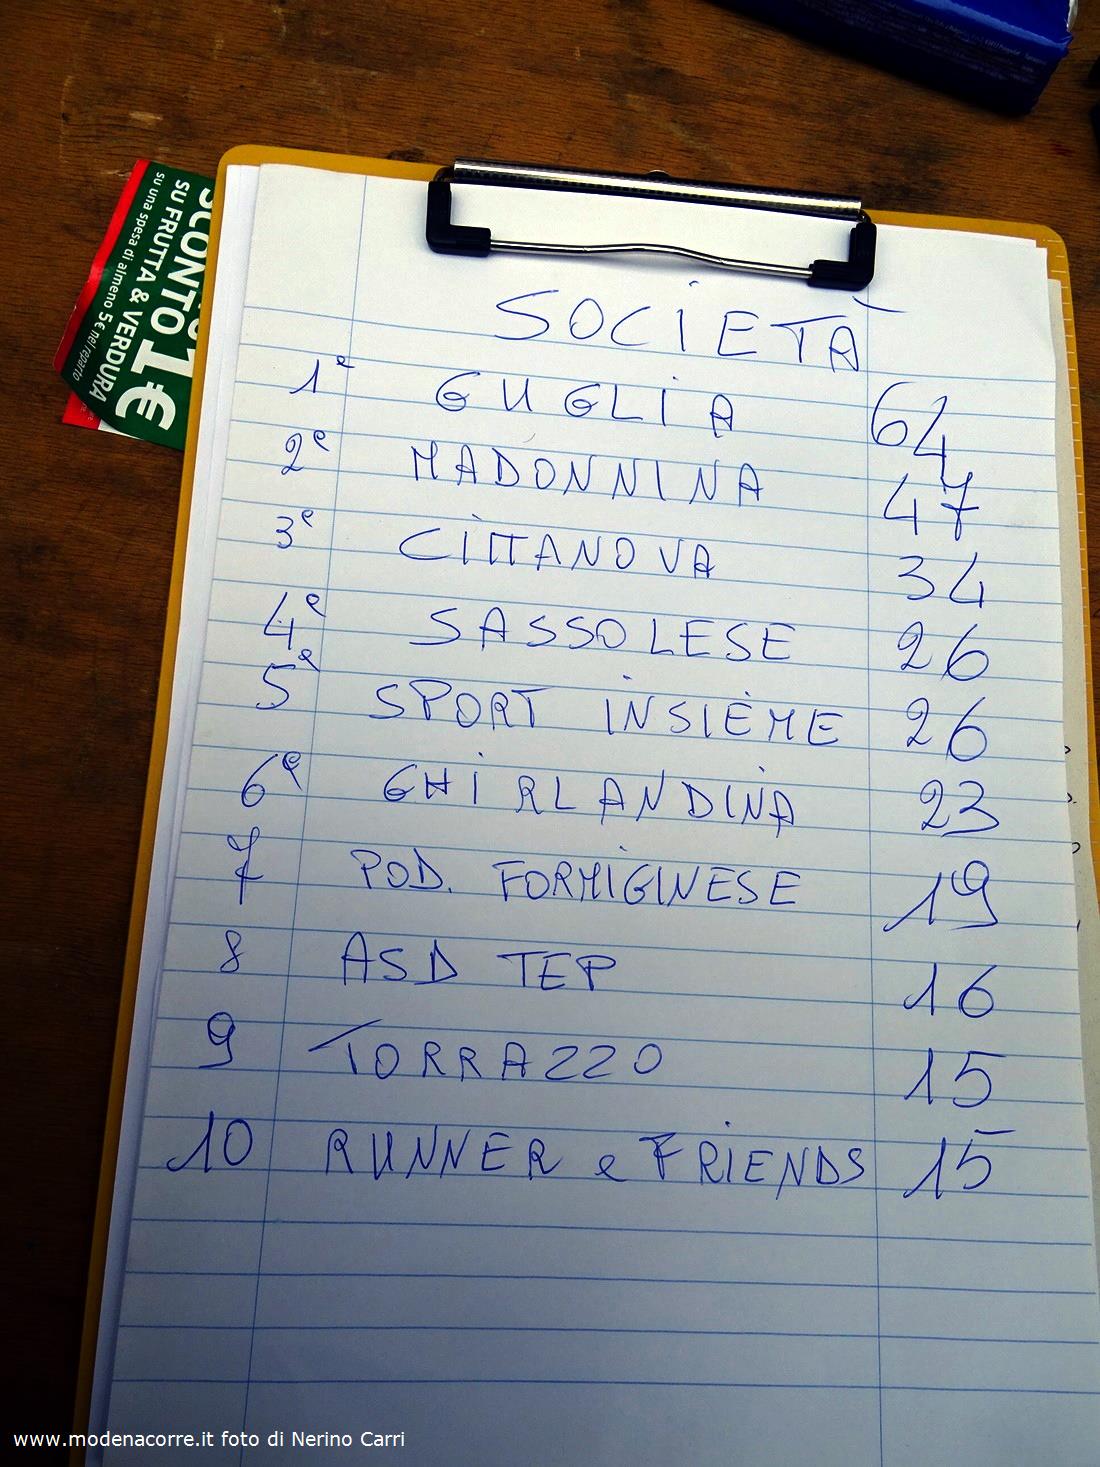 SCONTO 1€
SU FRUTTA & VERDURA
su una spesa di almeno 5€ nel reparto
SOCIETÀ
1ª GUGLIA 64
2ª MADONNINA 47
3ª CITTANOVA 34
4ª SASSOLESE 26
5ª SPORT INSIEME 26
6ª GHIRLANDINA 23
7 POD. FORMIGINESE 19
8 ASD TEP 16
9 TORRAZZO 15
10 RUNNER e FRIENDS 15
www.modenacorre.it foto di Nerino Carri